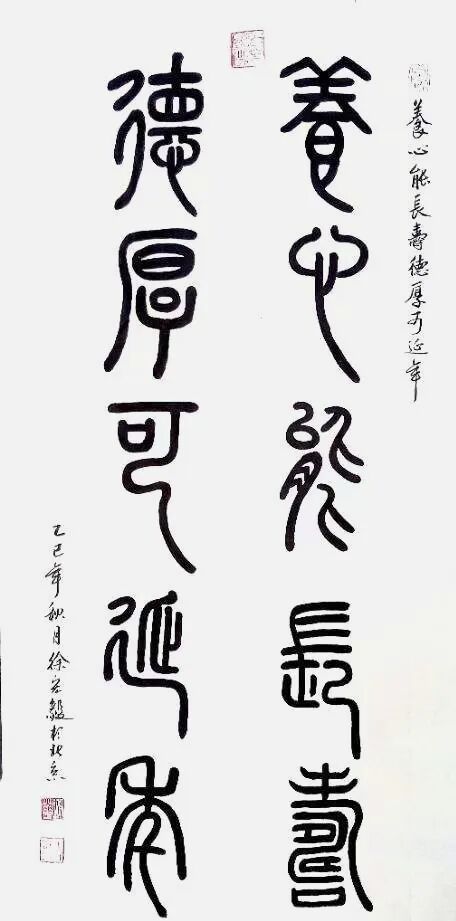 養心能長壽德厚可延年
養心能長壽
德厚可延年
乙巳年秋月徐於北京